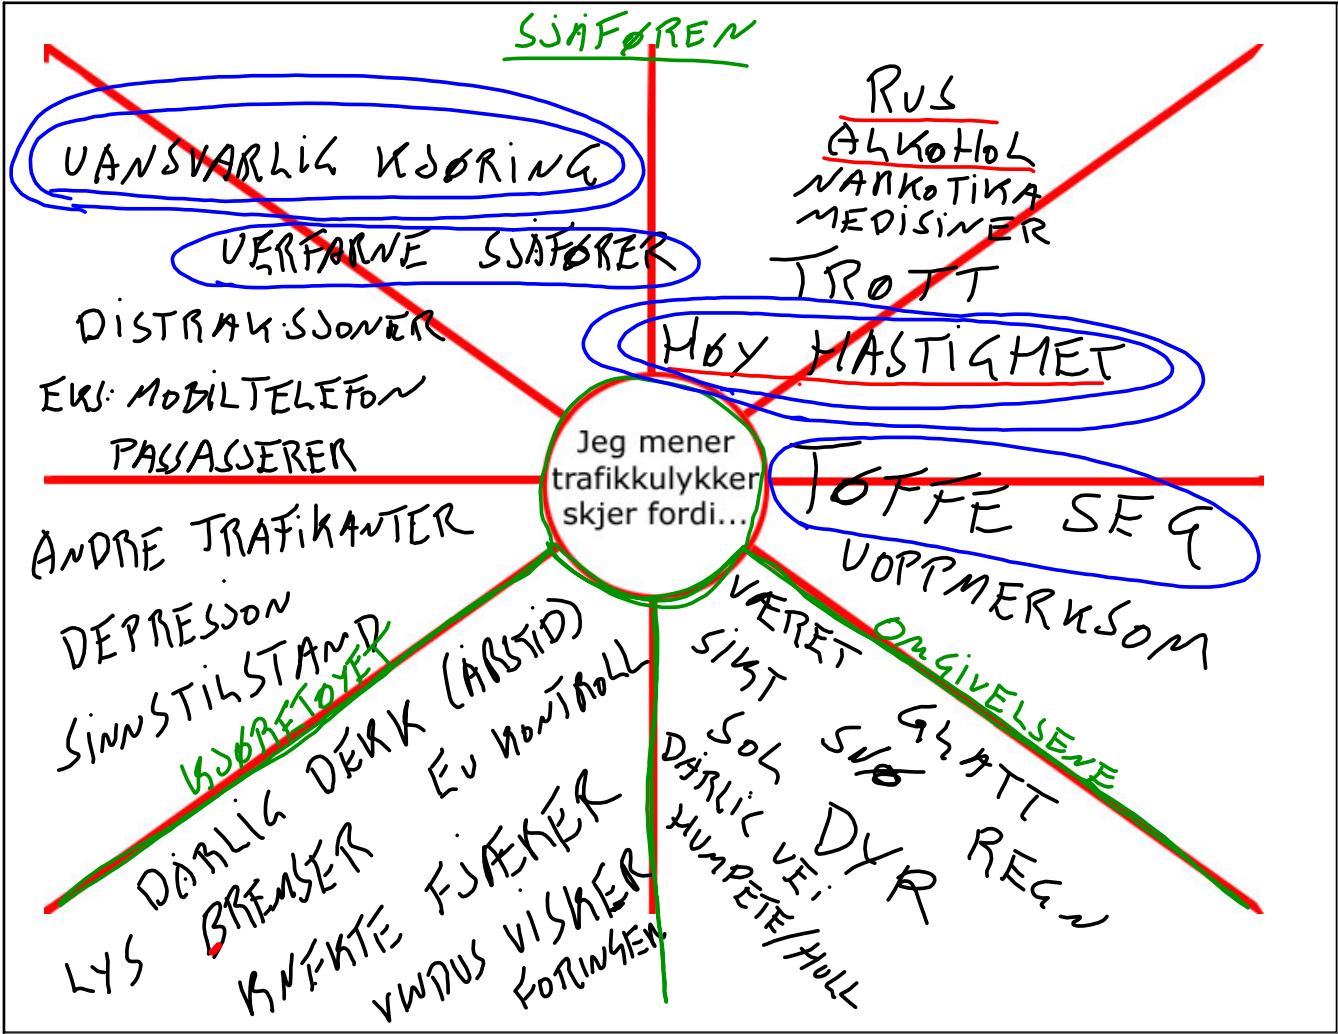 SJÅFØREN
UANSVARLIG KJØRING
UERFARNE SJÅFØRER
DISTRAKSJONER
EKS: MOBILTELEFON
PASSASJERER
RUS
ALKOHOL
NARKOTIKA
MEDISINER
TRØTT
HØY HASTIGHET
TØFFE SEG
UOPPMERKSOM
Jeg mener
trafikkulykker
skjer fordi...
ANDRE TRAFIKANTER
DEPRESJON
SINNSTILSTAND
KJØRETØYET
DÅRLIG DEKK (ÅRSTID)
EU KONTROLL
LYS
BREMSER
KNEKTE FJÆRER
VINDUS VISKER
FORINGER
OMGIVELSENE
VÆRET
SIKT
SOL
SNØ
GLATT
REGN
DYR
DÅRLIG VEI
HUMPETE/HULL